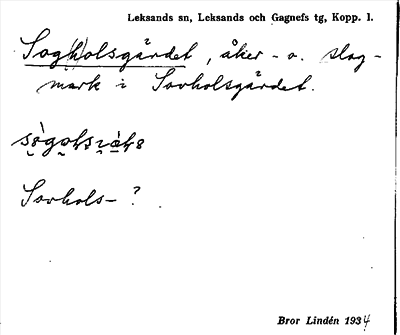 Leksands sn, Leksands och Gagnefs tg, Kopp. l.
Sog(h)olsgärdet, åker- o. slog-
mark i Sovholsgärdet.
Sovhols- ?
Bror Lindén 1934